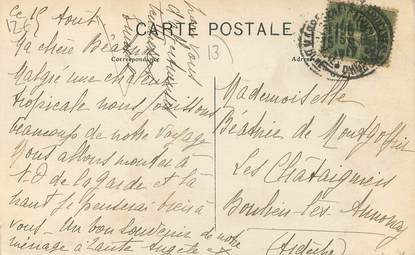 Ce 15 Août
CARTE POSTALE
Correspondance
Ma chère Béatrix
Malgré une chaleur
tropicale nous jouissons
beaucoup de notre voyage
Nous allons monter à
N.D de la Garde et là
haut je penserai bien à
vous. Un bon souvenir de notre
ménage à Tante Angèle et
pour vous
13
Mademoiselle
Béatrix de Montgolfier
Les Châtaigniers
Boulieu-lès-Annonay
(Ardèche)